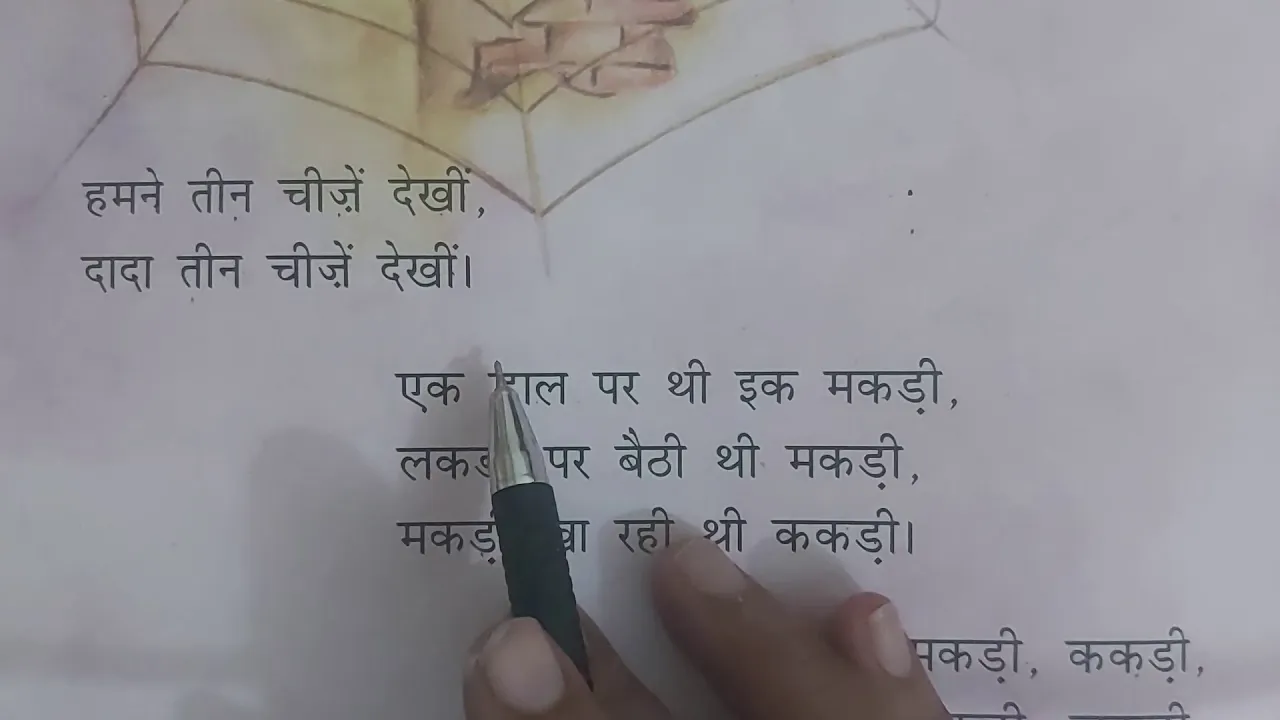 हमने तीन चीज़ें देखीं,
दादा तीन चीज़ें देखीं।
एक पर थी इक मकड़ी,
पर बैठी थी मकड़ी,
मकड़ी रही थी ककड़ी।
मकड़ी, ककड़ी,